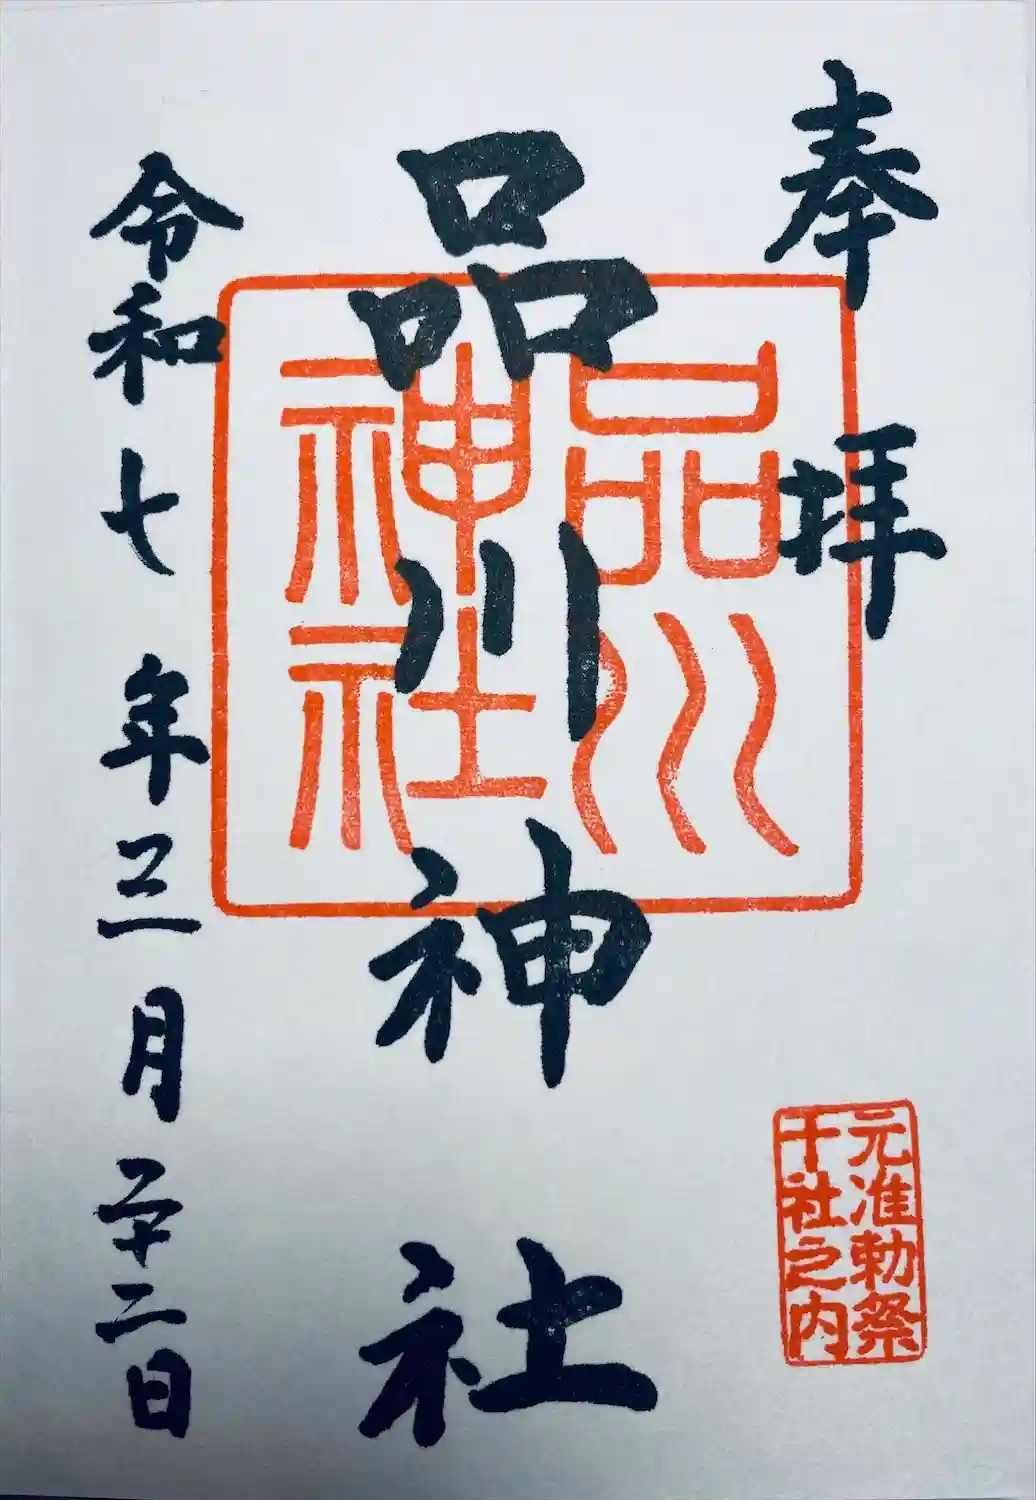 奉拝
品川神社
品川
神社
元准勅祭
十社之内
令和七年三月二十二日